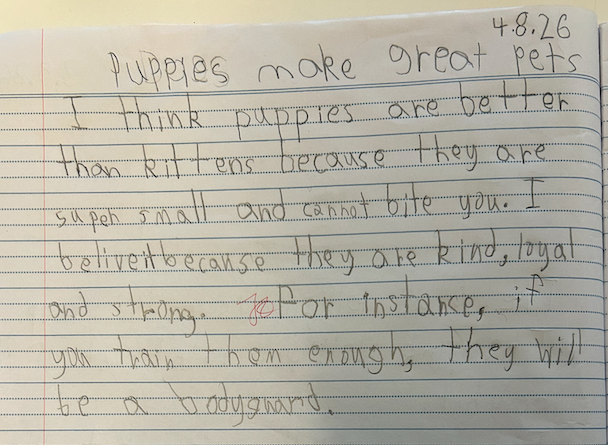 4.8.26
Puppies make great pets
I think puppies are better
than kittens because they are
super small and cannot bite you. I
beliveitbecause they are kind, loyal
and strong. For instance, if
you train them enough, they will
be a bodyguard.